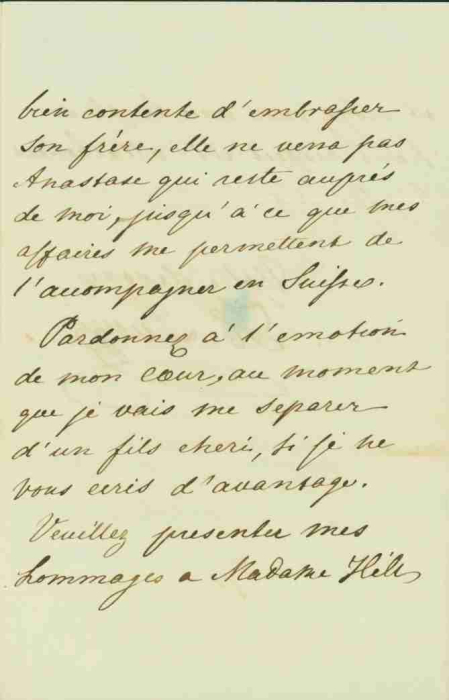 bien contente d'embrasser
son frére, elle ne verra pas
Anastase qui reste auprés
de moi, jusqu'à ce que mes
affaires me permettent de
l'acompagner en Suisse.
Pardonnez à l'emotion
de mon cœur, au moment
que je vais me separer
d'un fils cheri, si je ne
vous ecris d'avantage.
Veuillez presenter mes
hommages a Madame Hilt